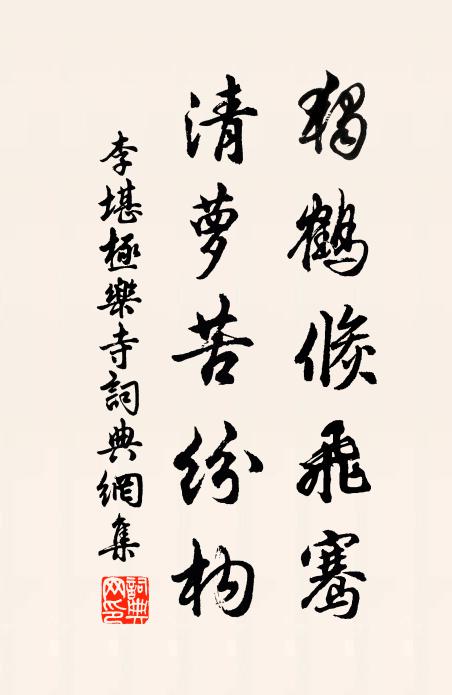 獨鶴倐飛騫
清夢苦紛枸
李堪極樂寺詞典網集
詞典网印